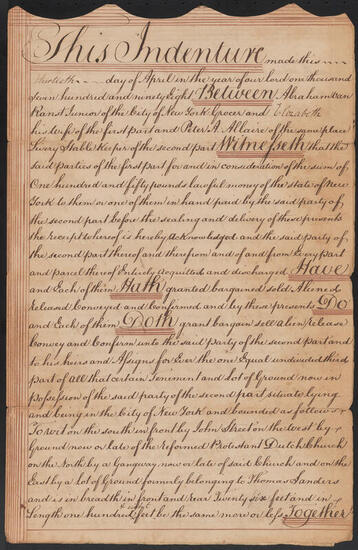 This Indenture made this
thirtieth day of April in the year of our lord one thousand
Seven hundred and ninety Eight Between Abraham Van
Ranst Junior of the City of New York Grocer and Elizabeth
his wife of the first part and Peter A. Allaire of the same place
Livery Stable Keeper of the second part Witnesseth that the
said parties of the first part for and in consideration of the sum of
One hundred and fifty pounds lawful money of the state of New
York to them or one of them in hand paid by the said party of
the second part before the sealing and delivery of these presents
the receipt whereof is hereby acknowledged and the said party of
the second part thereof and therefrom and of and from Every part
and parcel thereof Entirely acquitted and discharged Have
and Each of them Hath granted bargained sold Aliened
Released Conveyed and Confirmed and by these presents Do
and Each of them Doth grant bargain sell alien release
Convey and Confirm unto the said party of the second part and
to his heirs and Assigns for Ever the one Equal undivided third
part of all that certain Tenement and Lot of Ground now in
possession of the said party of the second part situate lying
and being in the City of New York and bounded as follows
To wit on the south in front by John Street on the west by
Ground now or late of the Reformed Protestant Dutch Church
on the North by a Gangway now or late of said Church and on the
East by a lot of Ground formerly belonging to Thomas Sanders
and is in breadth in front and rear Twenty six feet and in
Length one hundred feet be the same more or less Together